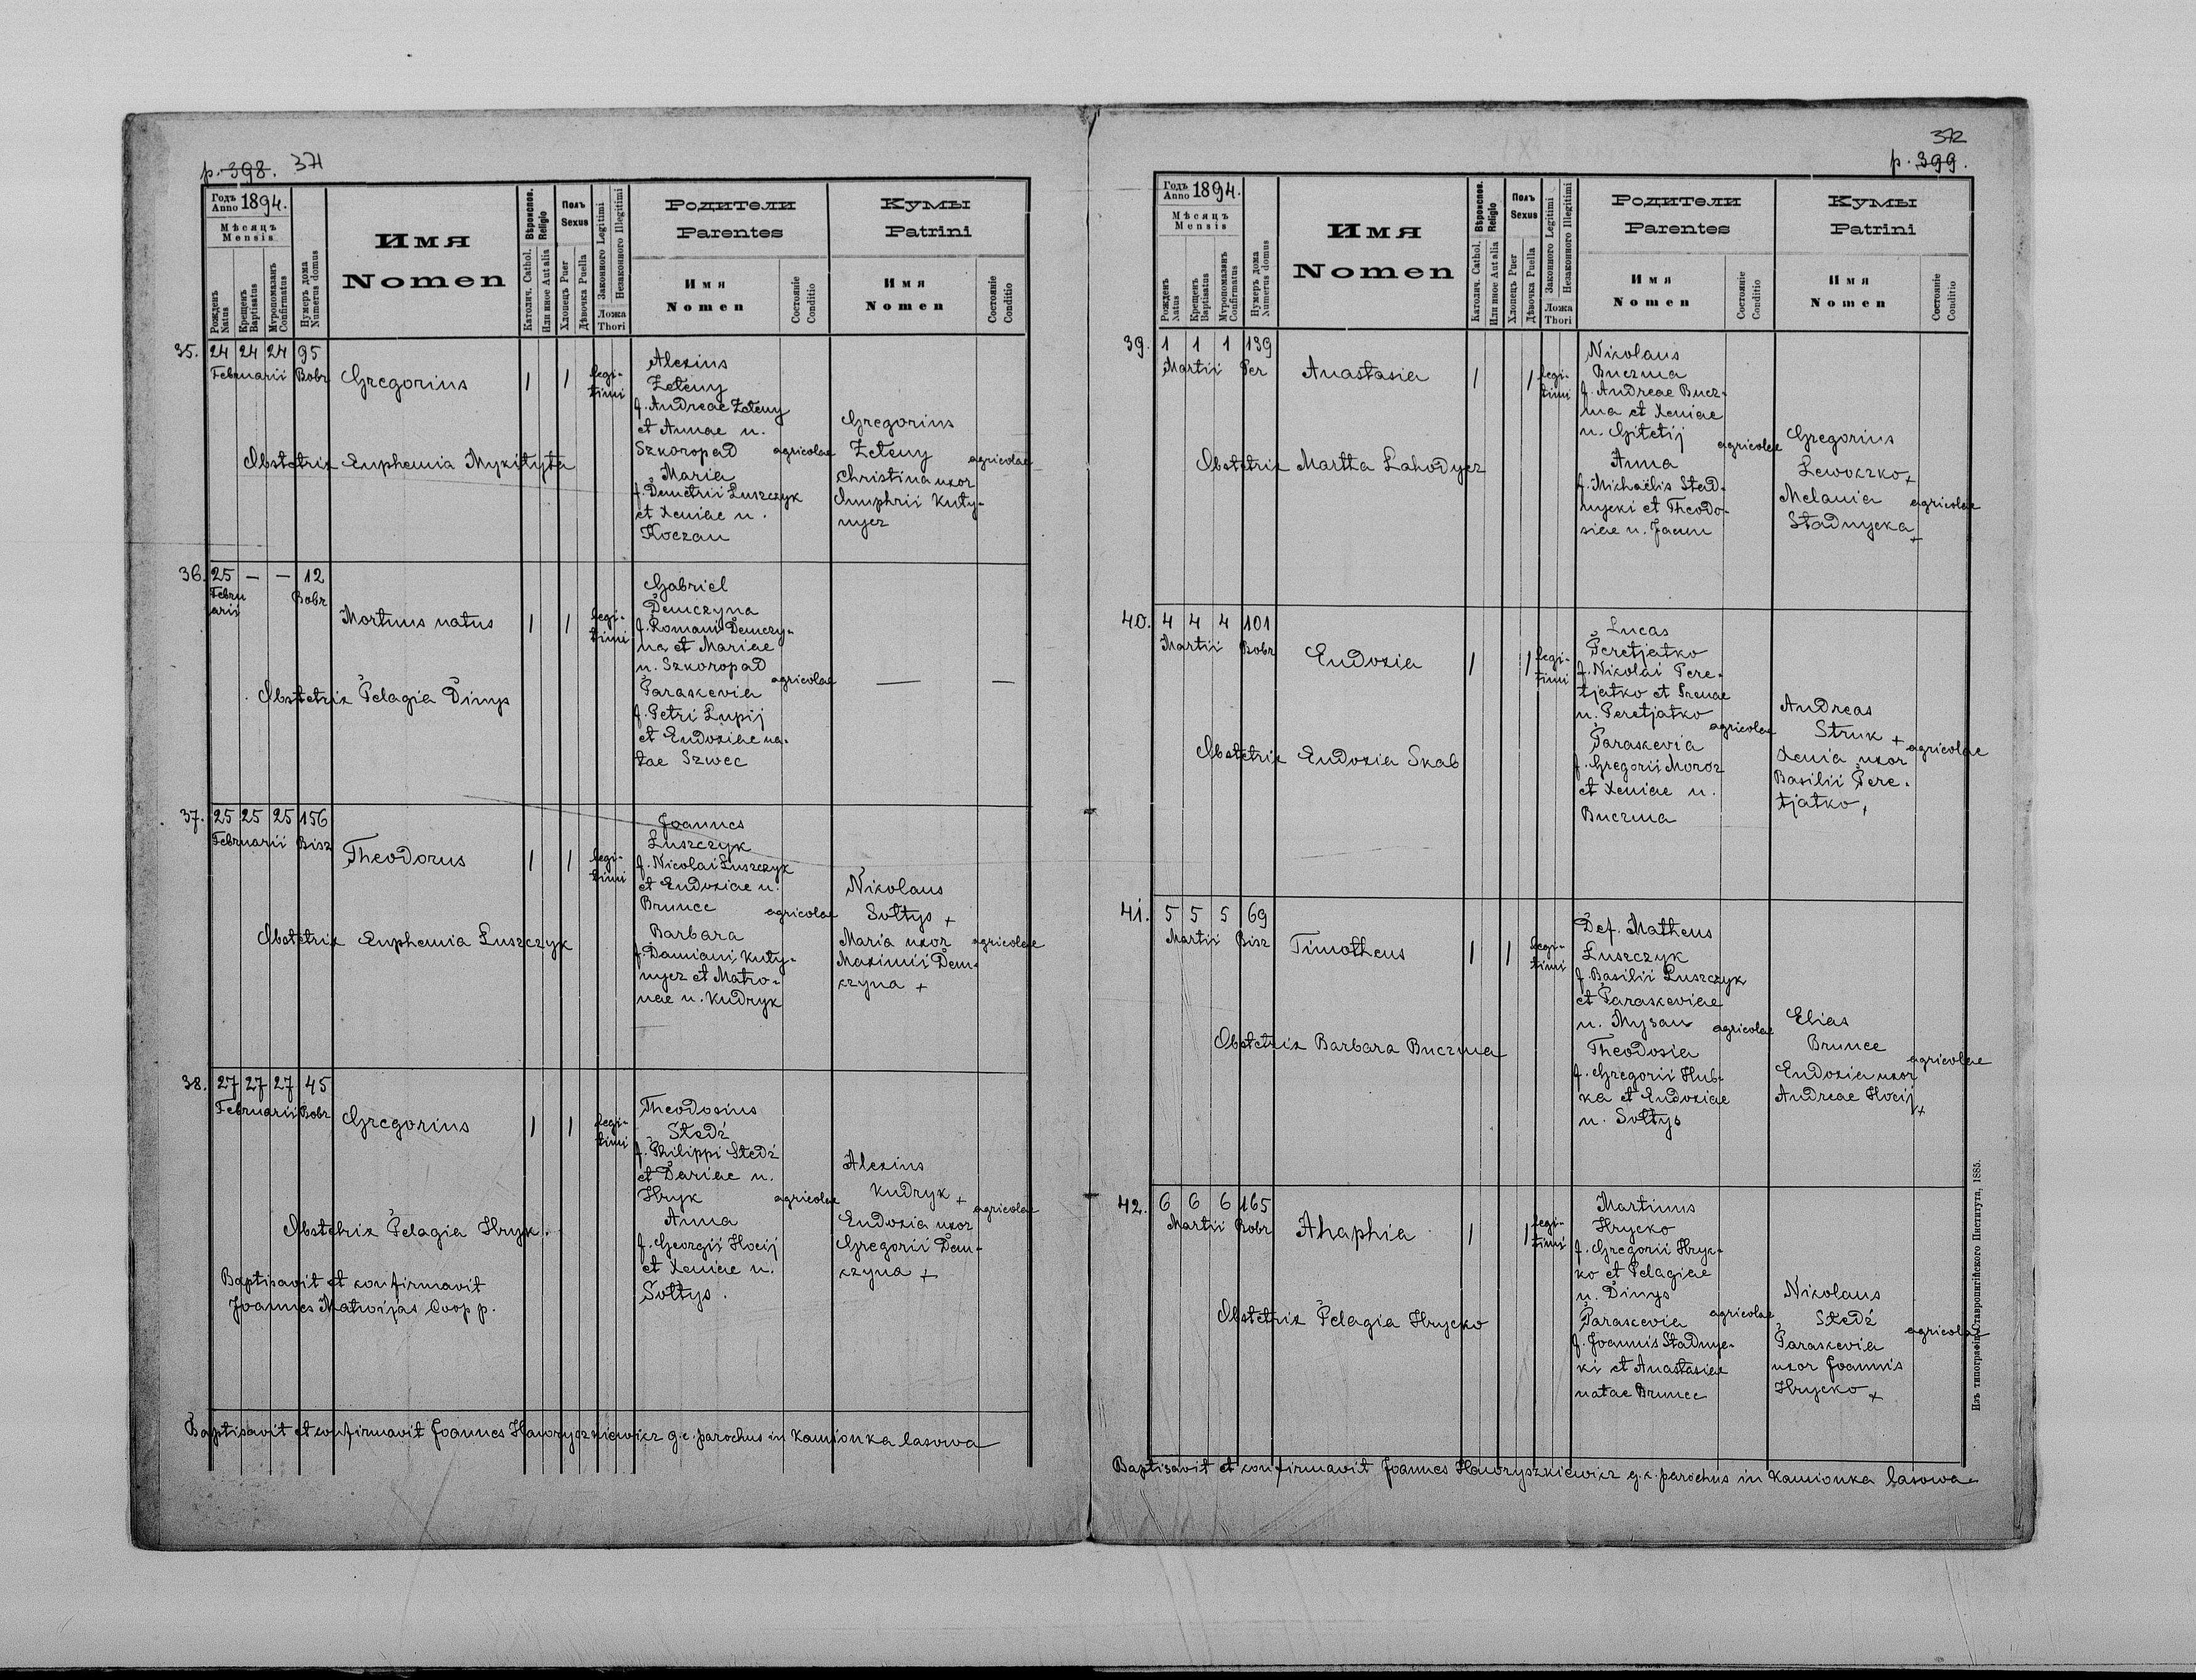 p. 398. 371
Годъ Anno 1894.
Мѣсяцъ
Mensis
Рожденъ Natus
Крещенъ Baptisatus
Мѵропомазанъ Confirmatus
Нумеръ дома Numerus domus
Имя
Nomen
Вѣроиспов. Religio
Католич. Cathol.
Или иное Aut alia
Полъ
Sexus
Хлопецъ Puer
Дѣвочка Puella
Законного Legitimi
Незаконного Illegitimi
Ложа
Thori
Родители
Parentes
Имя
Nomen
Состояніе
Conditio
Кумы
Patrini
Имя
Nomen
Состояніе
Conditio
35. 24 24 24 95
Februarii Bobr
Gregorius 1 1 legi-
timi
Alexius
Zeteny
f. Andreae Zeteny
et Annae n.
Szkoropad agricolae
Maria
f. Demetrii Luszczyk
et Xeniae n.
Koczan
Gregorius
Zeteny agricolae
Christina uxor
Onuphrii Kuty-
nycz
Obstetrix Euphemia Mykityta
36. 25 — — 12
Febru Bobr
arii
Mortuus natus 1 1 legi-
timi
Gabriel
Demczyna
f. Romani Demczy-
na et Mariae
n. Szkoropad
agricolae — —
Paraskevia
f. Petri Lupij
et Eudoxiae na-
tae Szwec
Obstetrix Pelagia Dinys
37. 25 25 25 156
Februarii Bisz
Theodorus 1 1 legi-
timi
Joannes
Luszczyk
f. Nicolai Luszczyk
et Eudoxiae n.
Brunec agricolae
Barbara
f. Damiani Kuty-
nycz et Matro-
nae n. Kudryk
Nikolaus
Sołtys +
Maria uxor agricolae
Maximii Dem-
czyna +
Obstetrix Euphemia Luszczyk
38. 27 27 27 45
Februarii Bobr
Gregorius 1 1 legi-
timi
Theodosius
Stedź
f. Philippi Stedź
et Dariae n.
Hryk agricolae
Anna
f. Georgii Hocij
et Xeniae n.
Sołtys.
Alexius
Kudryk +
agricolae
Eudoxia uxor
Gregorii Dem-
czyna +
Obstetrix Pelagia Hryk.
Baptisavit et confirmavit
Joannes Matwijas Coop p.
Baptisavit et confirmavit Joannes Hawryszkiewicz g.c. parochus in Kamionka lasowa
372
p. 399.
Годъ Anno 1894.
Мѣсяцъ
Mensis
Рожденъ Natus
Крещенъ Baptisatus
Мѵропомазанъ Confirmatus
Нумеръ дома Numerus domus
Имя
Nomen
Вѣроиспов. Religio
Католич. Cathol.
Или иное Aut alia
Полъ
Sexus
Хлопецъ Puer
Дѣвочка Puella
Законного Legitimi
Незаконного Illegitimi
Ложа
Thori
Родители
Parentes
Имя
Nomen
Состояніе
Conditio
Кумы
Patrini
Имя
Nomen
Состояніе
Conditio
39. 1 1 1 139
Martii Per
Anastasia 1 1 legi-
timi
Nikolaus
Buczma
f. Andreae Bucz-
ma et Xeniae
n. Gitetij
agricolae
Anna
f. Michaëlis Stad-
nycki et Theodo-
siae n. Jacun
Gregorius
Lewoczko +
Melania agricolae
Stadnycka +
Obstetrix Martta Lahodycz
40. 4 4 4 101
Martii Bobr
Eudoxia 1 1 legi-
timi
Lucas
Peretjatko
f. Nikolai Pere-
tjatko et Irenae
n. Peretjatko
agricolae
Paraskevia
f. Gregorii Moroz
et Xeniae n.
Buczma
Andreas
Struk + agricolae
Xenia uxor
Basilii Pere-
tjatko,
Obstetrix Eudoxia Skab
41. 5 5 5 69
Martii Bisz
Timotheus 1 1 legi-
timi
Def. Matheus
Luszczyk
f. Basilii Luszczyk
et Paraskeviae
n. Mysan agricolae
Theodosia
f. Gregorii Hub-
ka et Eudoxiae
n. Sołtys
Elias
Brunec agricolae
Eudoxia uxor
Andreae Hocij +
Obstetrix Barbara Buczma
42. 6 6 6 165
Martii Bobr
Ahaphia 1 1 legi-
timi
Martinus
Hrycko
f. Gregorii Hryc-
ko et Pelagiae
n. Dinys
Paraskevia agricolae
f. Joannis Stadnyc-
ki et Anastasiae
natae Brunec
Nikolaus
Stedź agricolae
Paraskevia
uxor Joannis
Hrycko +
Obstetrix Pelagia Hrycko
Baptisavit et confirmavit Joannes Hawryszkiewicz g.c. parochus in Kamionka lasowa
Изъ типографіи Ставропигійского Института, 1885.